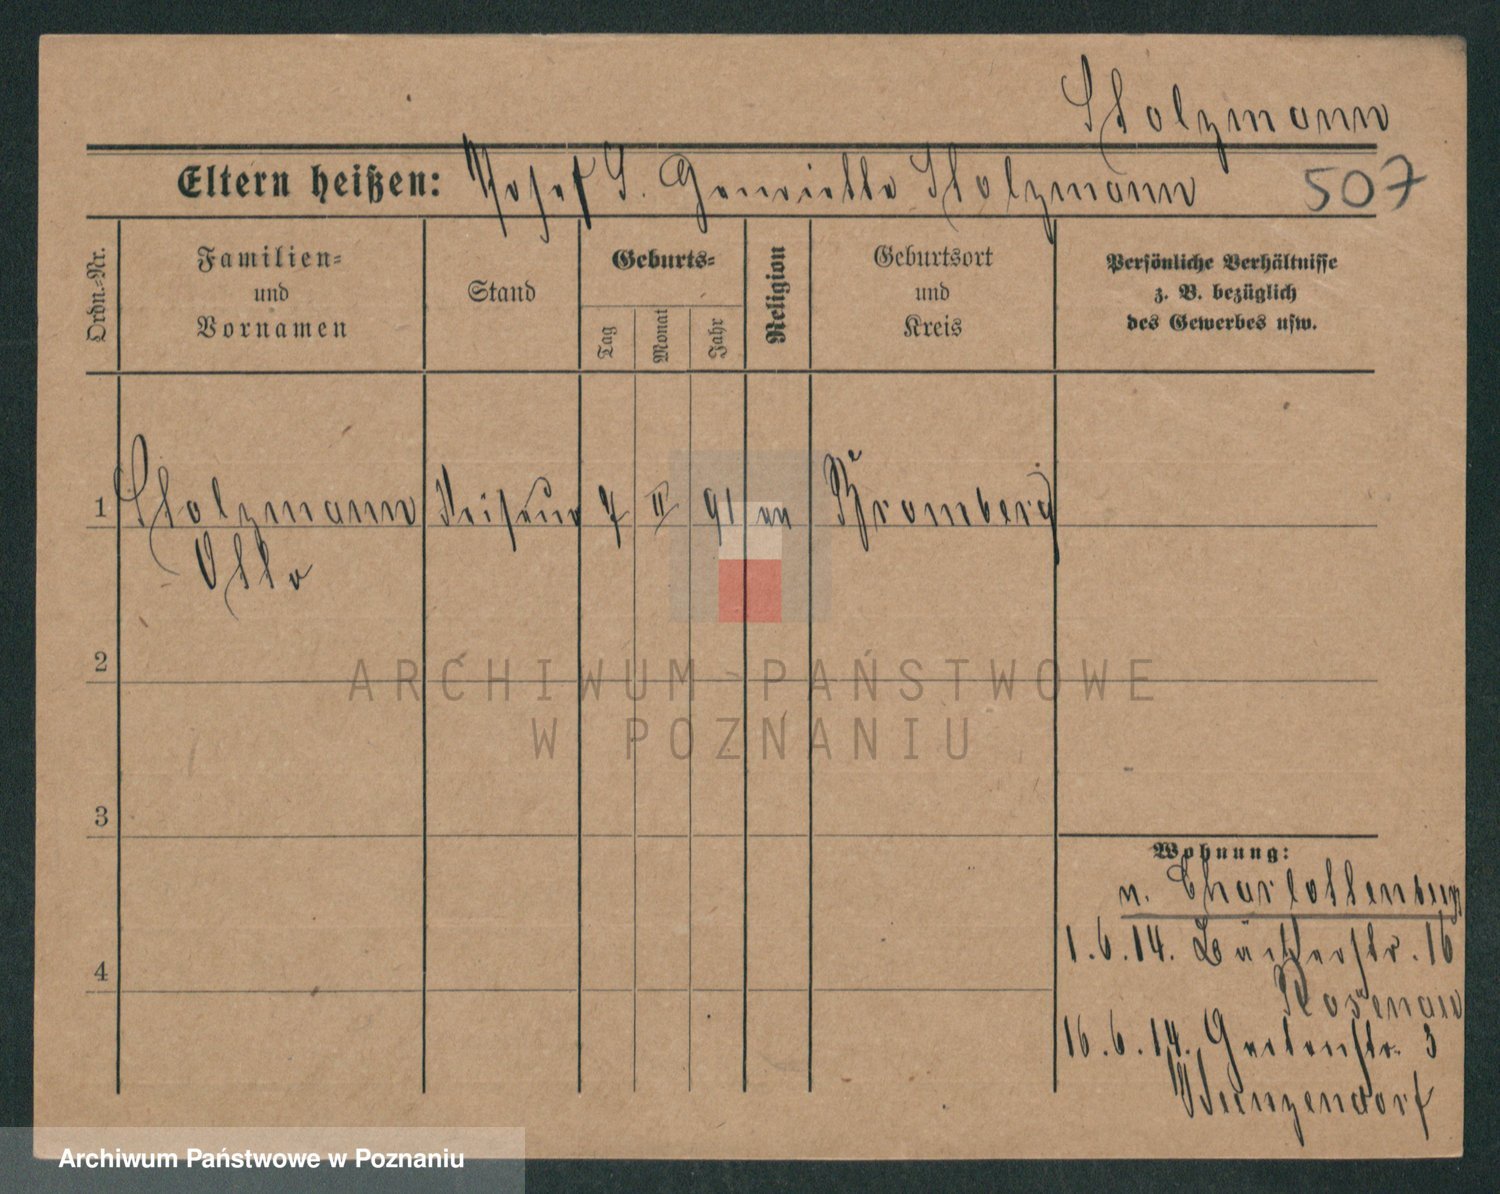 Stolzmann
Eltern heißen: Josef u. Henriette Stolzmann 507
Ordn.-Nr.
Familien-
und
Vornamen
Stand
Geburts-
Tag
Monat
Jahr
Religion
Geburtsort
und
Kreis
Persönliche Verhältnisse
z. B. bezüglich
des Gewerbes usw.
1 Stolzmann Friseur 7 II 91 ev Bromberg
Otto
2
ARCHIWUM PAŃSTWOWE
W POZNANIU
3
Wohnung:
n. Charlottenburg
4
1.6.14. 16
Rosenau
16.6.14. Gartenstr. 3
Archiwum Państwowe w Poznaniu